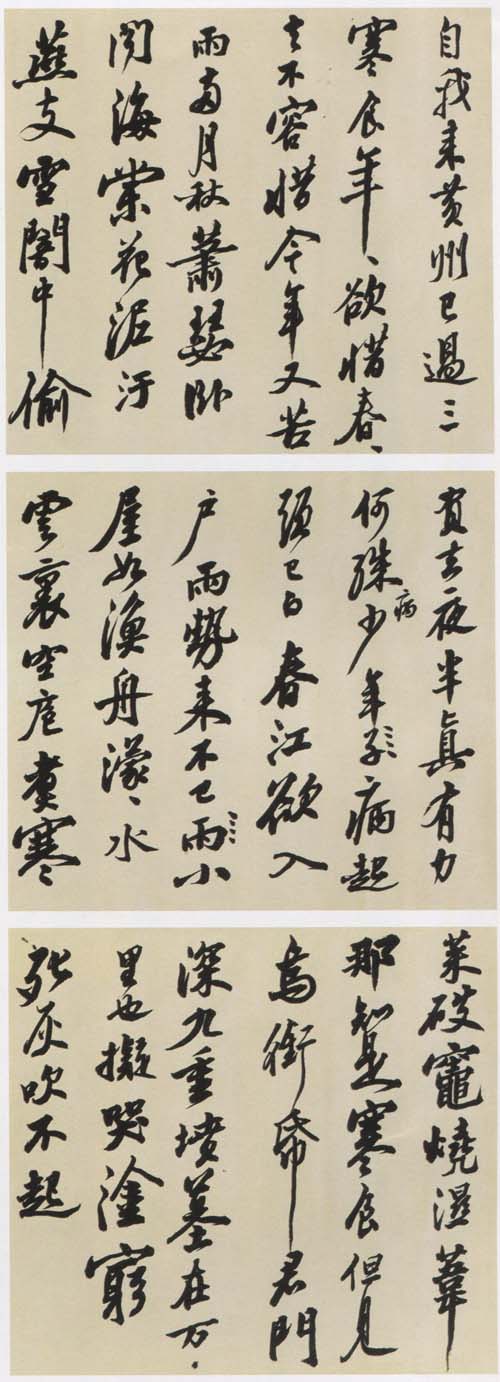 自我来黄州已過三
寒食年、欲惜春、
去不容惜今年又苦
雨兩月秋蕭瑟卧
聞海棠花泥汙
燕支雪闇中偷
負去夜半真有力
何殊病少年子病起
頭已白春江欲入
户雨勢来不已雨小
屋如漁舟濛、水
雲裏空庖煮寒
菜破竈燒濕葦
那知是寒食但見
烏銜帋君門
深九重墳墓在万
里也擬哭塗窮
死灰吹不起